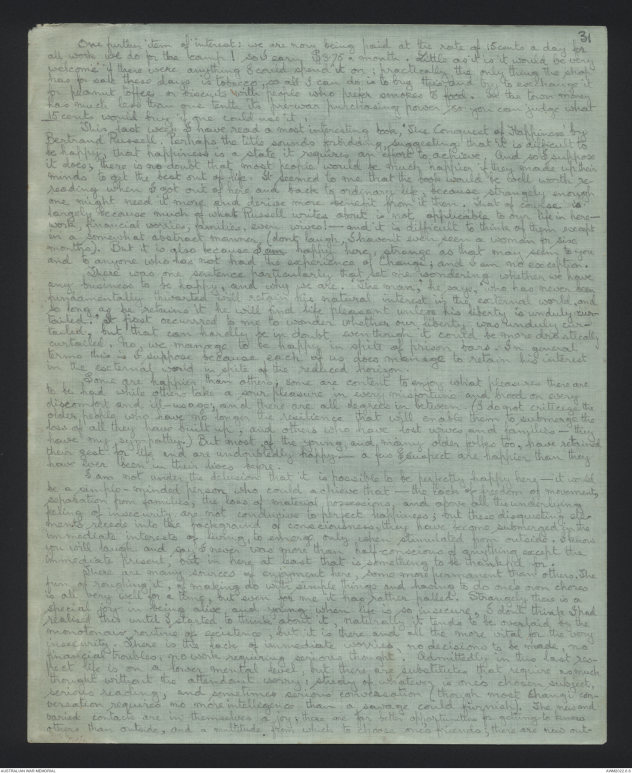 31
One further item of interest: we are now being paid at the rate of 15 cents a day for
all work we do for the camp! so I earn $3.75 a month. Little as it is it would be very
welcome if there were anything I could spend it on; practically the only thing the shop
has for sale these days is tobacco so all I can do is to buy this and try to exchange it
for peanut toffee or biscuits with people who prefer smokes to food. In the town money
has much less than one tenth its prewar purchasing power so you can judge what
15 cents would buy if one could use it.
This last week I have read a most interesting book, "The Conquest of Happiness" by
Bertrand Russell. Perhaps the title sounds forbidding, suggesting that it is difficult to
be happy, that happiness is a state it requires an effort to achieve. And so I suppose
it does; there is no doubt that most people would be much happier if they made up their
minds to get the best out of life. It seemed to me that the book would be well worth re-
reading when I got out of here and back to ordinary life, because strangely enough
one might need it more and derive more benefit from it then. That of course is
largely because much of what Russell writes about is not applicable to our life in here —
work, financial worries, families, even wives! — and it is difficult to think of them except
in a somewhat abstract manner, (don't laugh, I haven't even seen a woman for six
months). But it is also because I am happy here, strange as that may seem to you
and to anyone who has not had the experience of Changi, and I am no exception.
There was one sentence particularly that set one wondering whether we have
any business to be happy, and why we are. "The man," he says, "who has never been
fundamentally thwarted will retain his natural interest in the external world, and
so long as he retains it he will find life pleasant unless his liberty is unduly cur-
tailed." It first occurred to me to wonder whether our liberty was unduly cur-
tailed, but that can hardly be in doubt although it could be more drastically
curtailed. No, we manage to be happy in spite of prison bars and in general
terms this is I suppose because each of us does manage to retain his interest
in the external world in spite of the reduced horizon.
Some are happier than others, some are content to enjoy what pleasures there are
to be had while others take a sour pleasure in every misfortune and brood on every
discomfort and ill-usage, and there are all degrees in between. (I do not criticize the
older people who have no longer the resilience that will enable them to submerge the
loss of all they have built up, and others who have lost wives and families — they
have my sympathy.) But most of the young, and many older folks too, have retained
their zest for life and are undoubtedly happy — a few I suspect are happier than they
have ever been in their lives before.
I am not under the delusion that it is possible to be perfectly happy here — it would
be a simple-minded person who could achieve that — the lack of freedom of movement,
separation from families, the loss of material possessions, and above all the underlying
feeling of insecurity are not conducive to perfect happiness; but these disquieting ele-
ments recede into the background of consciousness, they have become submerged in the
immediate interests of living, to emerge only when stimulated from outside. I know
you will laugh and say I never was more than half-conscious of anything except the
immediate present, but in here at least that is something to be thankful for.
There are many sources of enjoyment here, some more permanent than others. The
fun of roughing it, of making do with simple things and having to do one's own chores
is all very well for a time, but even for me it has rather palled. Strangely there is a
special joy in being alive and young when life is so insecure, I don't think I had
realised this until I started to think about it; naturally it tends to be overlaid by the
monotonous routine of existence, but it is there and all the more vital for the very
insecurity. There is the lack of immediate worries, no decisions to be made, no
financial troubles, no work requiring serious thought. Admittedly in this last res-
pect life is on a lower mental level, but there are substitutes that require as much
thought without the attendant worry; study of whatever is one's chosen subject,
serious reading, and sometimes serious conversation (though most Changi con-
versation requires no more intelligence than a savage could furnish). The new and
varied contacts are in themselves a joy; there are far better opportunities for getting to know
others than outside, and a multitude from which to choose one's friends; there are new out-
AUSTRALIAN WAR MEMORIAL